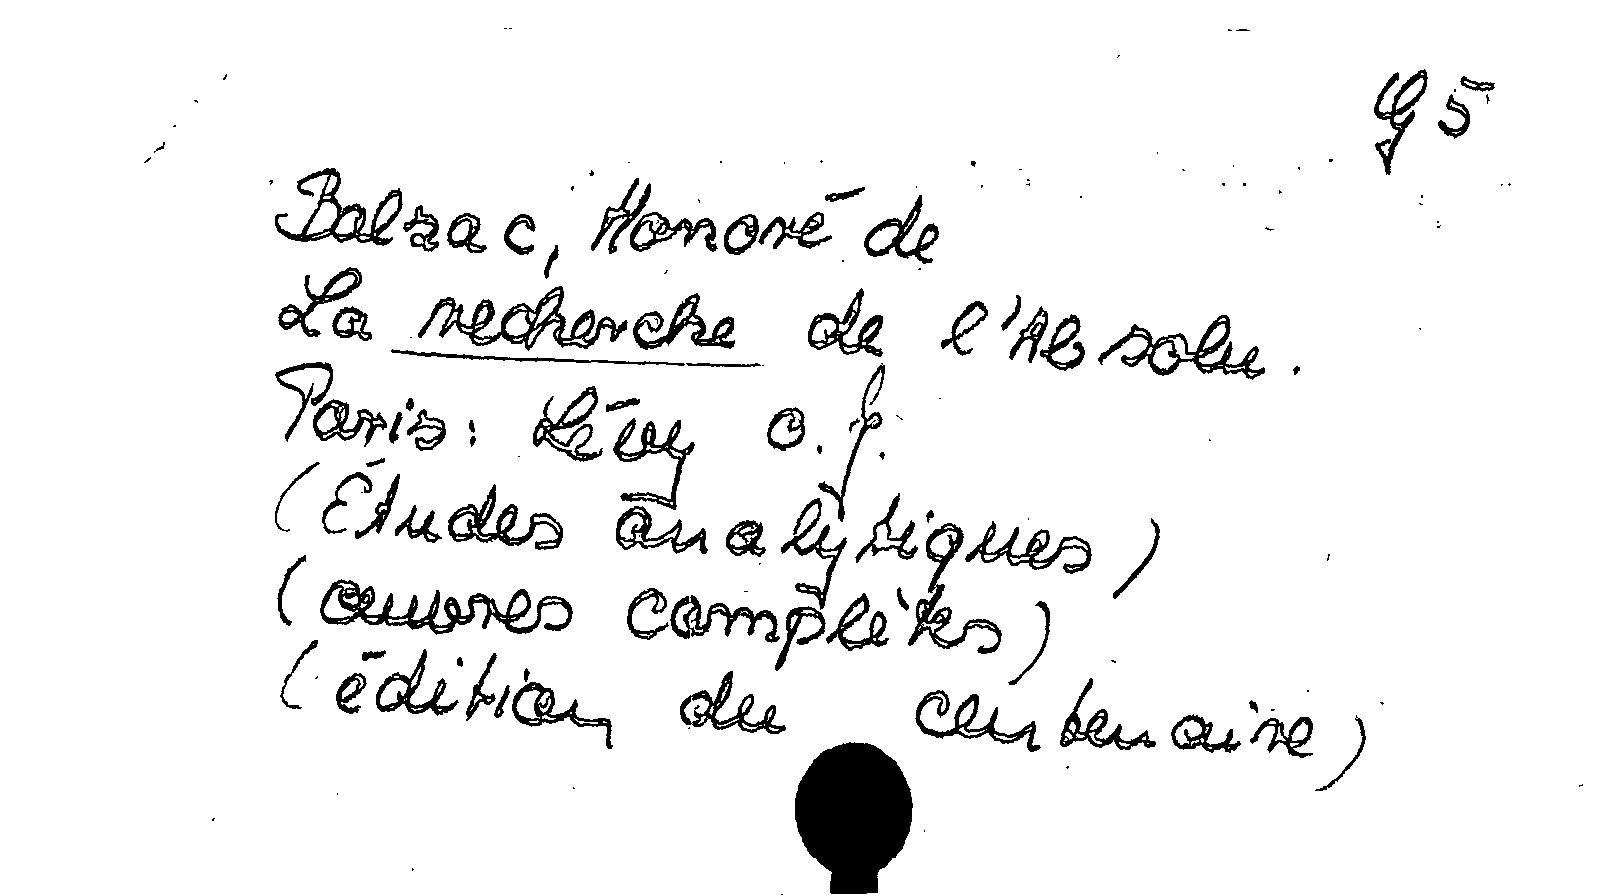 G 5
Balzac, Honoré de
La recherche de l'Absolu.
Paris: Lévy o. J.
(Études analytiques)
(œuvres complètes)
(édition du centenaire)